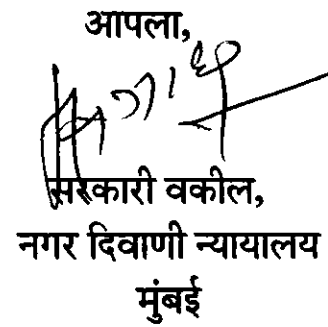 आपला,
सरकारी वकील,
नगर दिवाणी न्यायालय
मुंबई